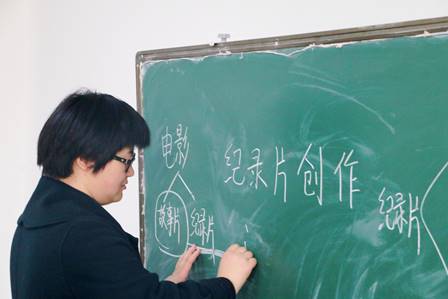 电影
纪录片创作
故事片
纪录片
纪录片